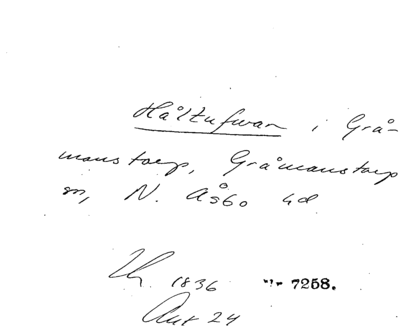 Håltufwan i Grå-
manstorp, Gråmanstorp
sn, N. Åsbo hd
1836 7258.
Akt 24